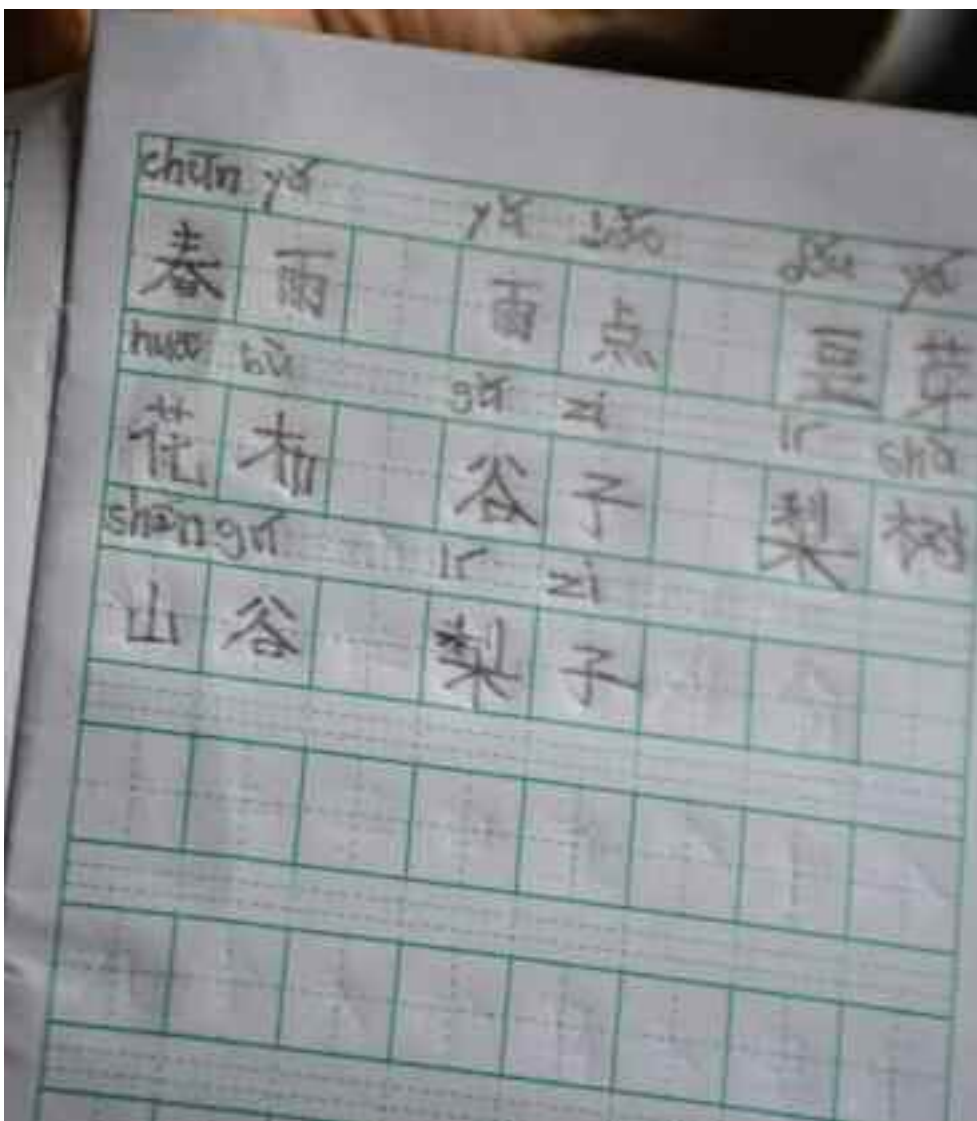 chūn yǔ yǔ dǒu yá
春雨 雨点 豆芽
huā bù gǔ zi lí shù
花 谷子 梨树
shān gǔ lí zi
山谷 梨子